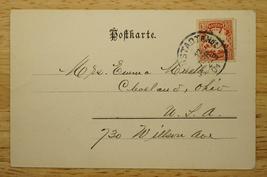 Postkarte.
Mrs. Emma
Cleveland, Ohio
U.S.A.
730 Willson Ave